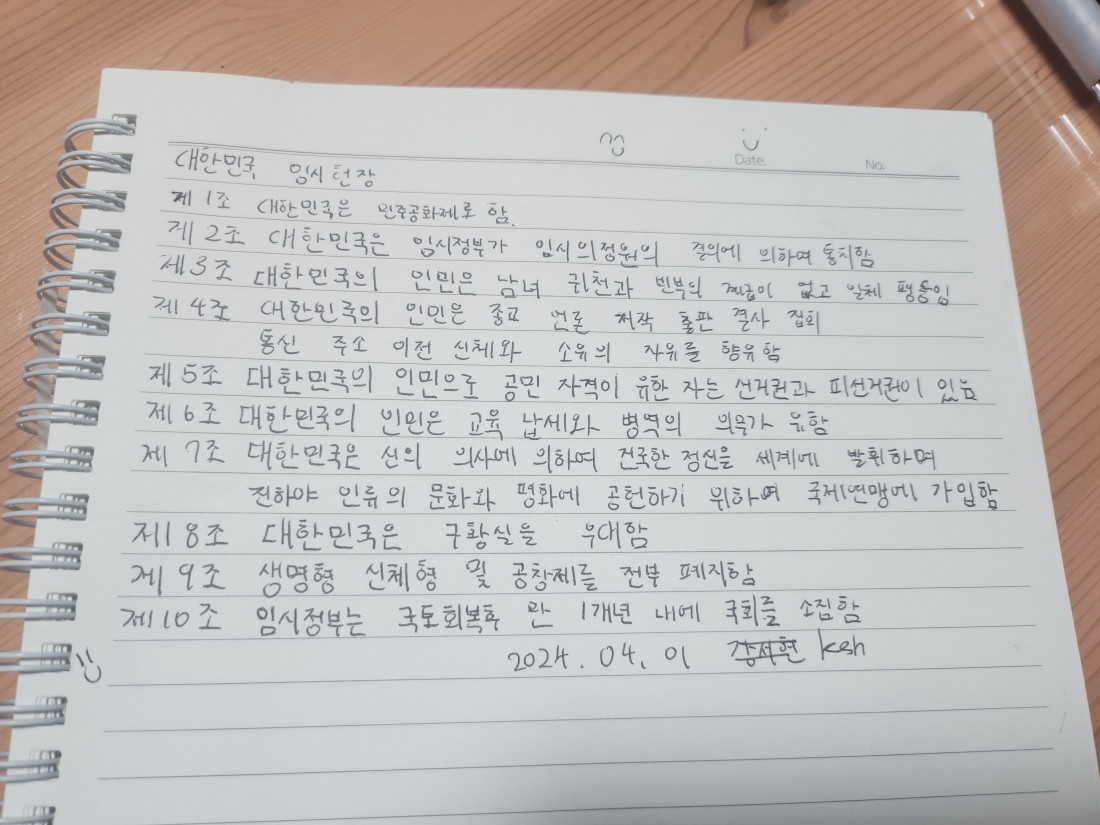 Date.
No.
대한민국 임시 헌장
제 1조 대한민국은 민주공화제로 함.
제 2조 대한민국은 임시정부가 임시의정원의 결의에 의하여 통치함
제 3조 대한민국의 인민은 남녀 귀천과 빈부의 계급이 없고 일체 평등임
제 4조 대한민국의 인민은 종교 언론 저작 출판 결사 집회
통신 주소 이전 신체와 소유의 자유를 향유함
제 5조 대한민국의 인민으로 공민 자격이 유한 자는 선거권과 피선거권이 있음
제 6조 대한민국의 인민은 교육 납세와 병역의 의무가 유함
제 7조 대한민국은 신의 의사에 의하여 건국한 정신을 세계에 발휘하며
진하야 인류의 문화와 평화에 공헌하기 위하여 국제연맹에 가입함
제 8조 대한민국은 구황실을 우대함
제 9조 생명형 신체형 및 공창제를 전부 폐지함
제 10조 임시정부는 국토회복후 만 1개년 내에 국회를 소집함
2024.04.01 ksh